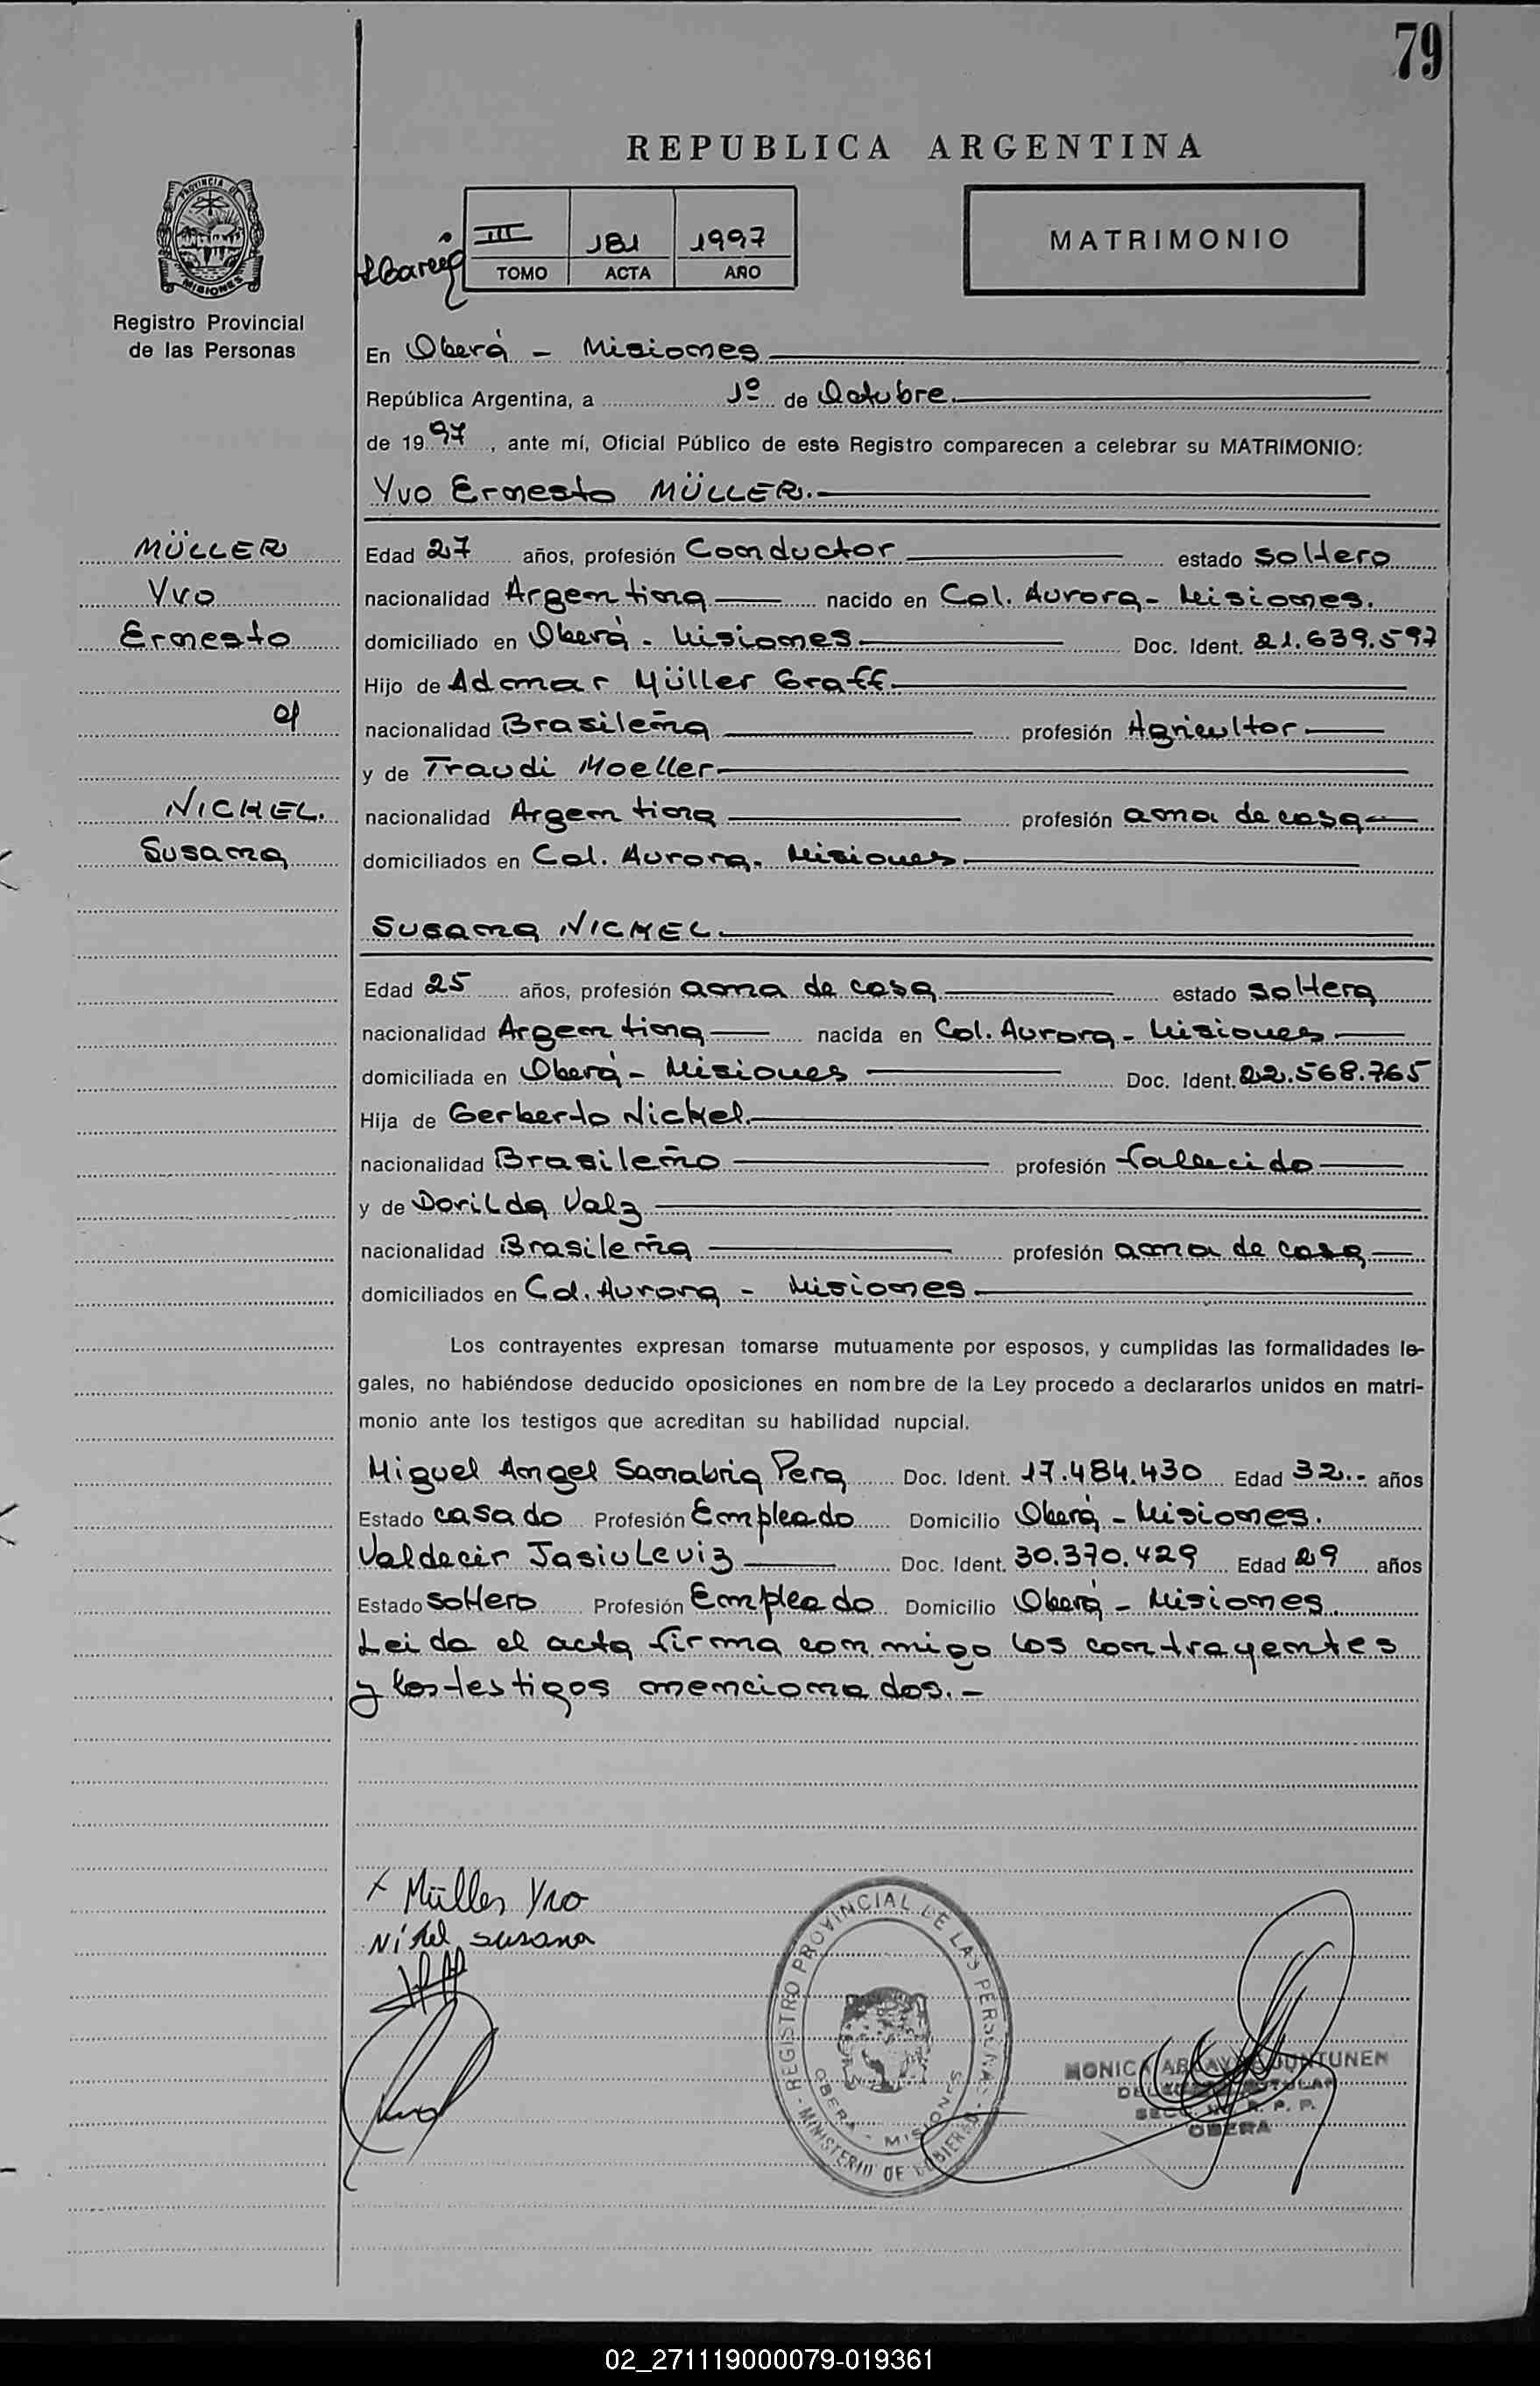 79
REPUBLICA ARGENTINA
PROVINCIA DE
MISIONES
Registro Provincial
de las Personas
III 181 1997
TOMO ACTA AÑO
MATRIMONIO
En Oberá - Misiones
República Argentina, a 1º de Octubre.
de 1997, ante mí, Oficial Público de este Registro comparecen a celebrar su MATRIMONIO:
Yvo Ernesto MÜLLER.
MÜLLER
Yvo
Ernesto
c/
NICKEL.
Susana
Edad 27 años, profesión Conductor estado soltero
nacionalidad Argentina nacido en Col. Aurora - Misiones.
domiciliado en Oberá - Misiones Doc. Ident. 21.639.597
Hijo de Adomar Müller Graff
nacionalidad Brasileña profesión Agricultor
y de Traudi Moeller
nacionalidad Argentina profesión ama de casa
domiciliados en Col. Aurora - Misiones
Susana NICKEL.
Edad 25 años, profesión ama de casa estado soltera
nacionalidad Argentina nacida en Col. Aurora - Misiones
domiciliada en Oberá - Misiones Doc. Ident. 22.568.765
Hija de Gerberto Nickel.
nacionalidad Brasileño profesión fallecido
y de Dorilda Valz
nacionalidad Brasileña profesión ama de casa
domiciliados en Col. Aurora - Misiones
Los contrayentes expresan tomarse mutuamente por esposos, y cumplidas las formalidades le-
gales, no habiéndose deducido oposiciones en nombre de la Ley procedo a declararlos unidos en matri-
monio ante los testigos que acreditan su habilidad nupcial.
Miguel Angel Sanabria Pera Doc. Ident. 17.484.430 Edad 32.- años
Estado casado Profesión Empleado Domicilio Oberá - Misiones.
Valdecir Jasiuleviz Doc. Ident. 30.370.429 Edad 29 años
Estado soltero Profesión Empleado Domicilio Oberá - Misiones.
Leida el acta firma conmigo los contrayentes
y los testigos mencionados.-
x Müller Yvo
Nikel susana
REGISTRO PROVINCIAL DE LAS PERSONAS
OBERA - MISIONES
MINISTERIO DE GOBIERNO
MONICA JUNTUNEN
R. P. P.
OBERA
02_271119000079-019361